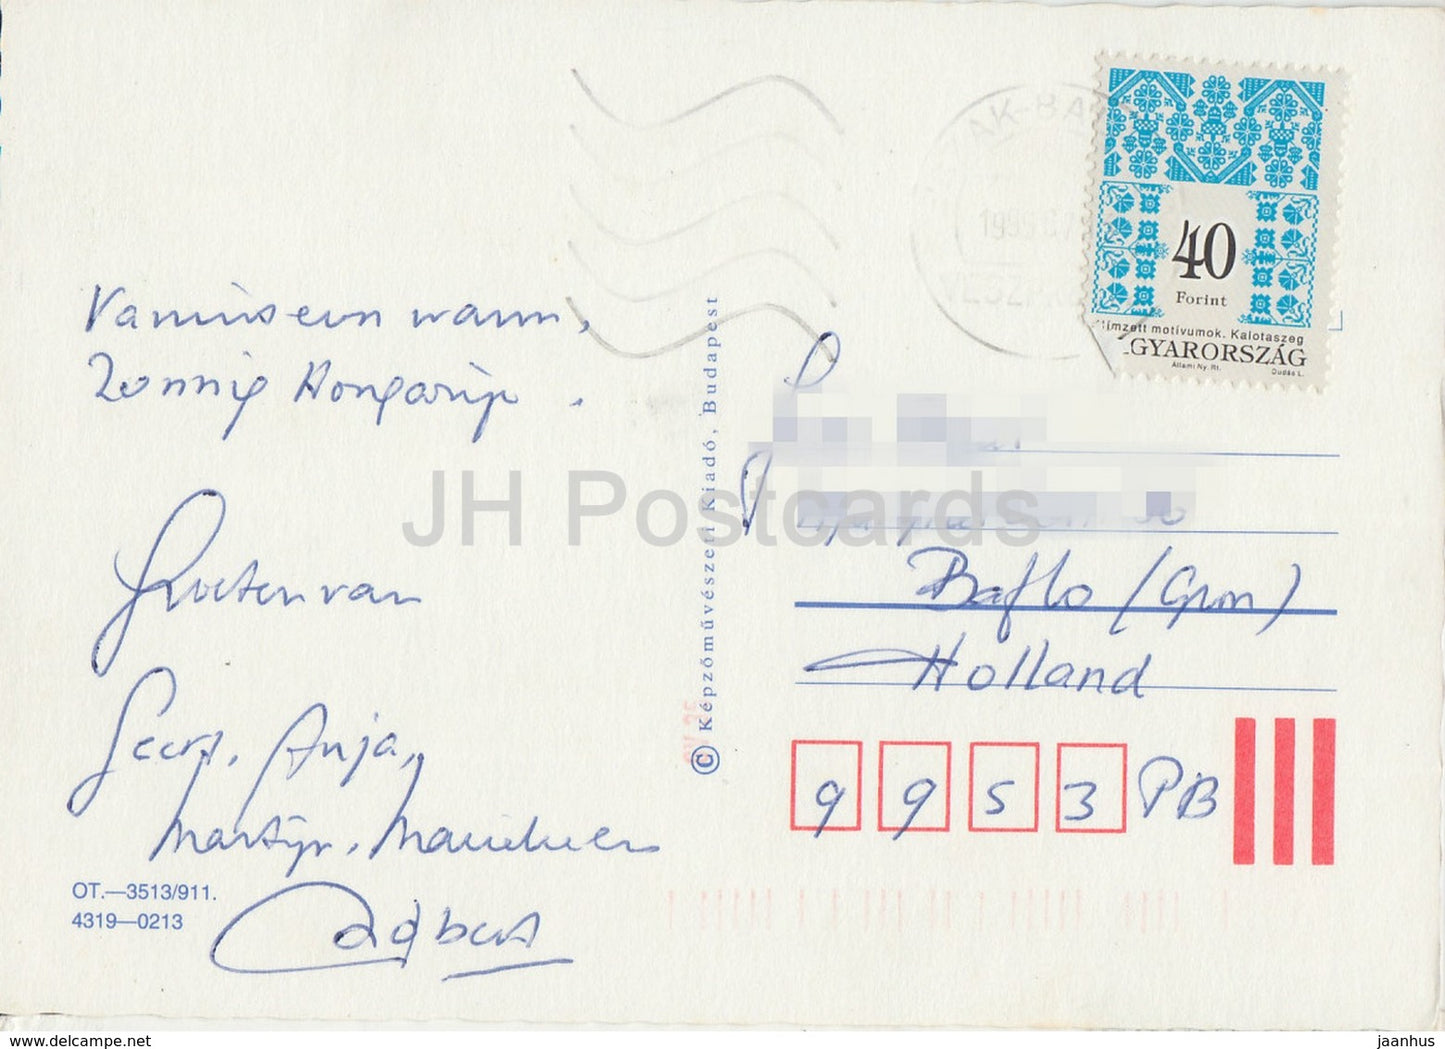 Vanuit een warm,
zonnig Hongarije.
Groeten van
Geert, Anja,
Martijn, Marieke en
OT.—3513/911.
4319—0213
© Képzőművészeti Kiadó, Budapest
AK-BA
1995
40
Forint
Hímzett motívumok. Kalotaszeg
GYARORSZÁG
Állami Ny. Rt. Dudás L.
Baflo (Gron)
Holland
9953 PB
JH Postcards
www.delcampe.net
jaanhus